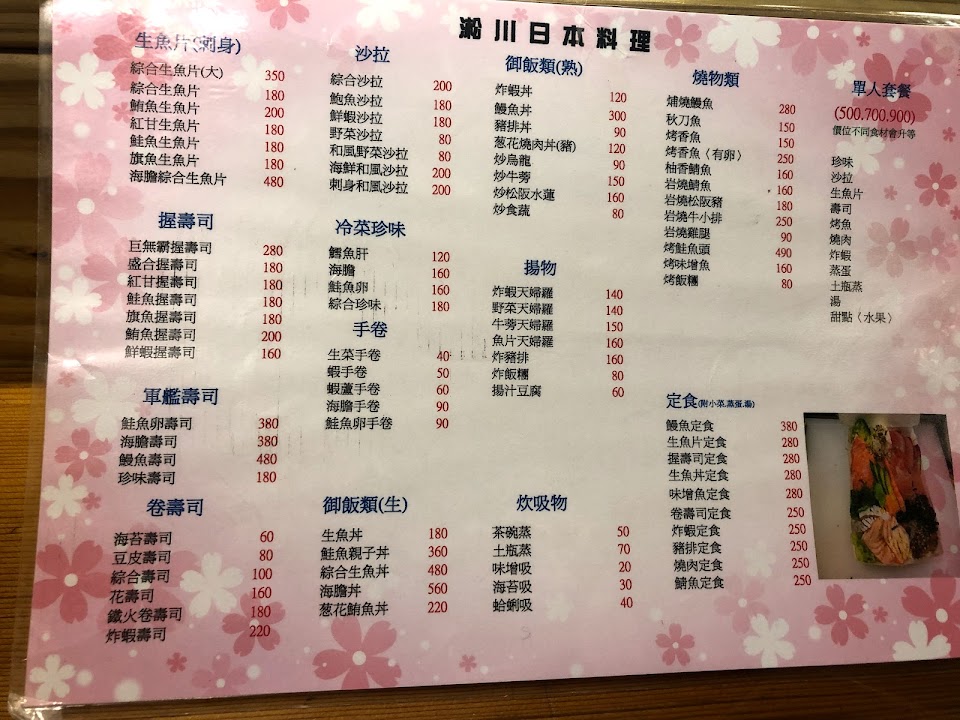 淞川日本料理
生魚片(刺身)
綜合生魚片(大) 350
綜合生魚片 180
鮪魚生魚片 200
紅甘生魚片 180
鮭魚生魚片 180
旗魚生魚片 180
海膽綜合生魚片 480
握壽司
巨無霸握壽司 280
盛合握壽司 180
紅甘握壽司 180
鮭魚握壽司 180
旗魚握壽司 180
鮪魚握壽司 200
鮮蝦握壽司 160
軍艦壽司
鮭魚卵壽司 380
海膽壽司 380
鰻魚壽司 480
珍味壽司 180
卷壽司
海苔壽司 60
豆皮壽司 80
綜合壽司 100
花壽司 160
鐵火卷壽司 180
炸蝦壽司 220
沙拉
綜合沙拉 200
鮑魚沙拉 180
鮮蝦沙拉 180
野菜沙拉 80
和風野菜沙拉 80
海鮮和風沙拉 200
刺身和風沙拉 200
冷菜珍味
鱈魚肝 120
海膽 160
鮭魚卵 160
綜合珍味 180
手卷
生菜手卷 40
蝦手卷 50
蝦蘆手卷 60
海膽手卷 90
鮭魚卵手卷 90
御飯類(生)
生魚丼 180
鮭魚親子丼 360
綜合生魚丼 480
海膽丼 560
葱花鮪魚丼 220
御飯類(熟)
炸蝦丼 120
鰻魚丼 300
豬排丼 90
葱花燒肉丼(豬) 120
炒烏龍 90
炒牛蒡 150
炒松阪水蓮 160
炒食蔬 80
揚物
炸蝦天婦羅 140
野菜天婦羅 140
牛蒡天婦羅 150
魚片天婦羅 160
炸豬排 160
炸飯糰 80
揚汁豆腐 60
炊吸物
茶碗蒸 50
土瓶蒸 70
味增吸 20
海苔吸 30
蛤蜊吸 40
燒物類
蒲燒鰻魚 280
秋刀魚 150
烤香魚 150
烤香魚〈有卵〉 250
柚香鯖魚 160
岩燒鯖魚 160
岩燒松阪豬 180
岩燒牛小排 250
岩燒雞腿 90
烤鮭魚頭 490
烤味增魚 160
烤飯糰 80
定食(附小菜.蒸蛋.湯)
鰻魚定食 380
生魚片定食 280
握壽司定食 280
生魚丼定食 280
味增魚定食 280
卷壽司定食 250
炸蝦定食 250
豬排定食 250
燒肉定食 250
鯖魚定食 250
單人套餐
(500.700.900)
價位不同食材會升等
珍味
沙拉
生魚片
壽司
烤魚
燒肉
炸蝦
蒸蛋
土瓶蒸
湯
甜點〈水果〉